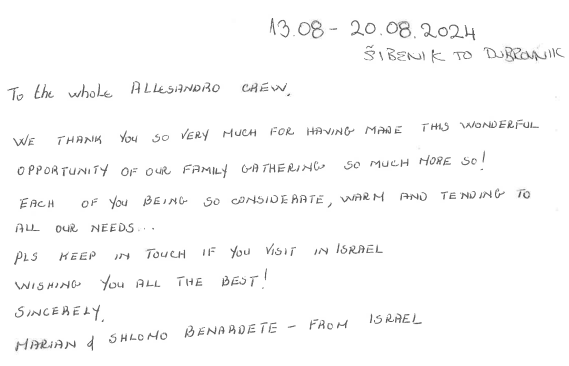 13.08 - 20.08.2024
ŠIBENIK TO DUBROVNIK
To the whole ALLESANDRO CREW,
WE THANK YOU SO VERY MUCH FOR HAVING MADE THIS WONDERFUL
OPPORTUNITY OF OUR FAMILY GATHERING SO MUCH MORE SO!
EACH OF YOU BEING SO CONSIDERATE, WARM AND TENDING TO
ALL OUR NEEDS...
PLS KEEP IN TOUCH IF YOU VISIT IN ISRAEL
WISHING YOU ALL THE BEST!
SINCERELY,
MARIAN & SHLOMO BENARDETE - FROM ISRAEL